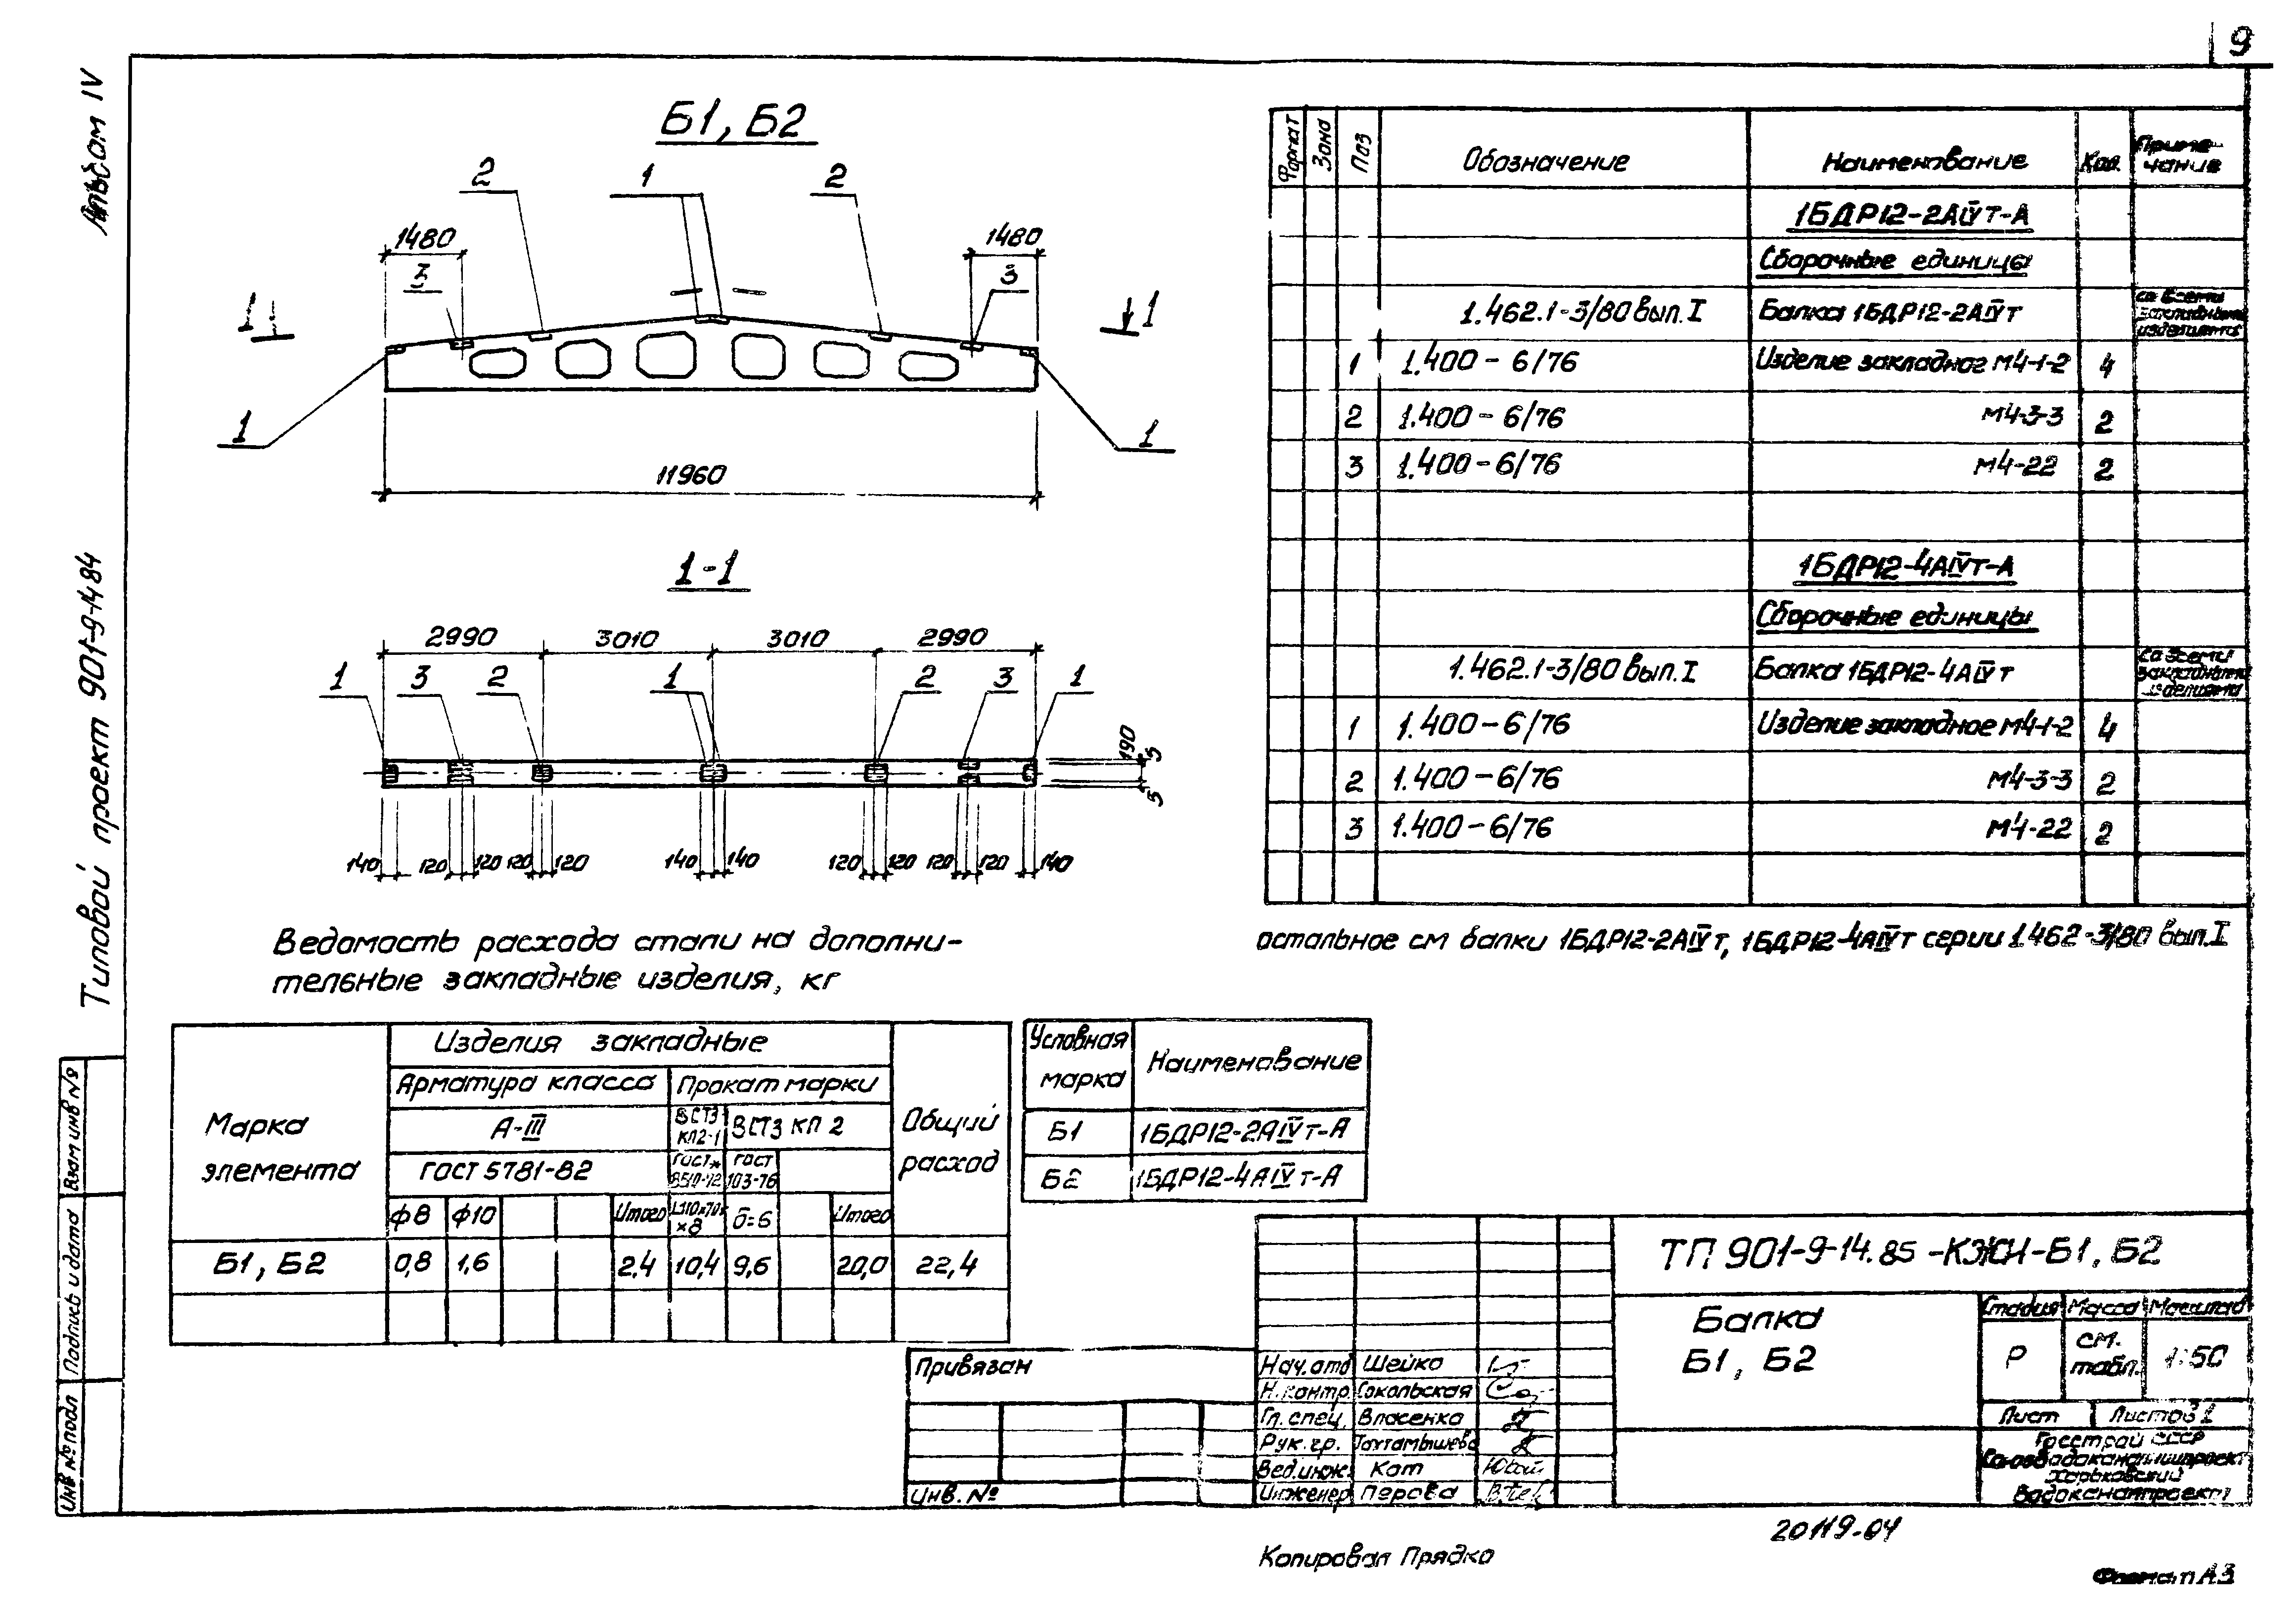 9
Альбом IV
Типовой проект 901-9-14 84
Б1, Б2
2 1 2
1480 1480
3 3
1 1
1 1
11960
1-1
2990 3010 3010 2990
1 3 2 1 2 3 1
190 5
5
140 120 120 120 120 140 140 120 120 120 120 140
Формат Зона Поз Обозначение Наименование Кол. Приме-
чание
1БДР12-2АⅣт-А
Сборочные единицы
1.462.1-3/80 вып. I Балка 1БДР12-2АⅣт со всеми
закладными
изделиями
1 1.400-6/76 Изделие закладное М4-1-2 4
2 1.400-6/76 М4-3-3 2
3 1.400-6/76 М4-22 2
1БДР12-4АⅣт-А
Сборочные единицы
1.462.1-3/80 вып. I Балка 1БДР12-4АⅣт со всеми
закладными
изделиями
1 1.400-6/76 Изделие закладное М4-1-2 4
2 1.400-6/76 М4-3-3 2
3 1.400-6/76 М4-22 2
остальное см балки 1БДР12-2АⅣт, 1БДР12-4АⅣт серии 1.462-3/80 вып. I
Ведомость расхода стали на дополни-
тельные закладные изделия, кг
Марка
элемента
Изделия закладные
Арматура класса Прокат марки
А-III ВСТ3
КП2-1 ВСТ3 КП 2
ГОСТ 5781-82 ГОСТ*
8510-72 ГОСТ
103-76
ф8 ф10 Итого L110×70×
×8 δ=6 Итого
Общий
расход
Б1, Б2 0,8 1,6 2,4 10,4 9,6 20,0 22,4
Условная
марка Наименование
Б1 1БДР12-2АⅣт-А
Б2 1БДР12-4АⅣт-А
Взам инв №
Подпись и дата
Инв № подл
Привязан
Инв. №
ТП 901-9-14.85 -КЖИ-Б1, Б2
Балка
Б1, Б2
Стадия Масса Масштаб
Р см.
табл. 1:50
Лист Листов 1
Госстрой СССР
Союзводоканалниипроект
Харьковский
Водоканалпроект
Нач. отд Шейко
Н. контр. Сокольская
Гл. спец. Власенко
Рук. гр. Тохтамышева
Вед. инж. Кот
Инженер Перова
20119-04
Копировал Прядко
Формат А3